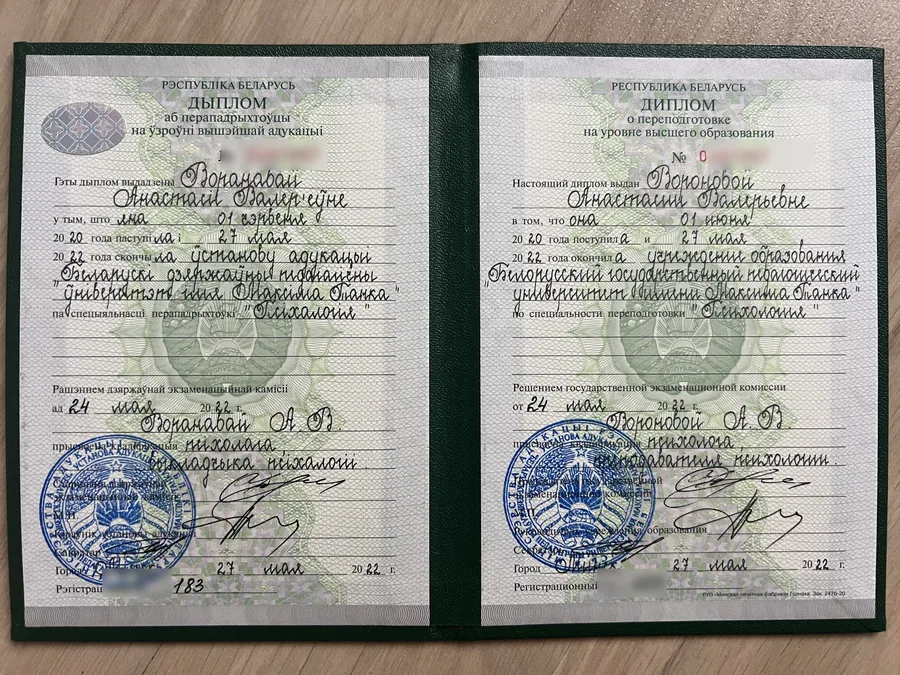 РЭСПУБЛІКА БЕЛАРУСЬ
ДЫПЛОМ
аб перападрыхтоўцы
на ўзроўні вышэйшай адукацыі
Гэты дыплом выдадзены Воранавай
Анастасіі Валер'еўне
у тым, што яна 01 чэрвеня
20 20 года паступі ла і 27 мая
20 22 года скончы ла ўстанову адукацыі
"Беларускі дзяржаўны педагагічны
ўніверсітэт імя Максіма Танка"
па спецыяльнасці перападрыхтоўкі "Псіхалогія"
Рашэннем дзяржаўнай экзаменацыйнай камісіі
ад 24 мая 20 22 г.
Воранавай А. В
прысвоена кваліфікацыя псіхолага
выкладчыка псіхалогіі
Старшыня дзяржаўнай
экзаменацыйнай камісіі
Кіраўнік установы адукацыі
Сакратар
Горад 27 мая 20 22 г.
183
РЕСПУБЛИКА БЕЛАРУСЬ
ДИПЛОМ
о переподготовке
на уровне высшего образования
№ 0
Настоящий диплом выдан Вороновой
Анастасии Валерьевне
в том, что она 01 июня
20 20 года поступил а и 27 мая
20 22 года окончил а учреждение образования
"Белорусский государственный педагогический
университет имени Максима Танка"
по специальности переподготовки "Психология"
Решением государственной экзаменационной комиссии
от 24 мая 20 22 г.
Вороновой А. В
присвоена квалификация психолога
преподавателя психологии.
экзаменационной комиссии
образования
Город 27 мая 20 22 г.
РУП «Минская печатная фабрика» Гознака. Зак. 2476-20